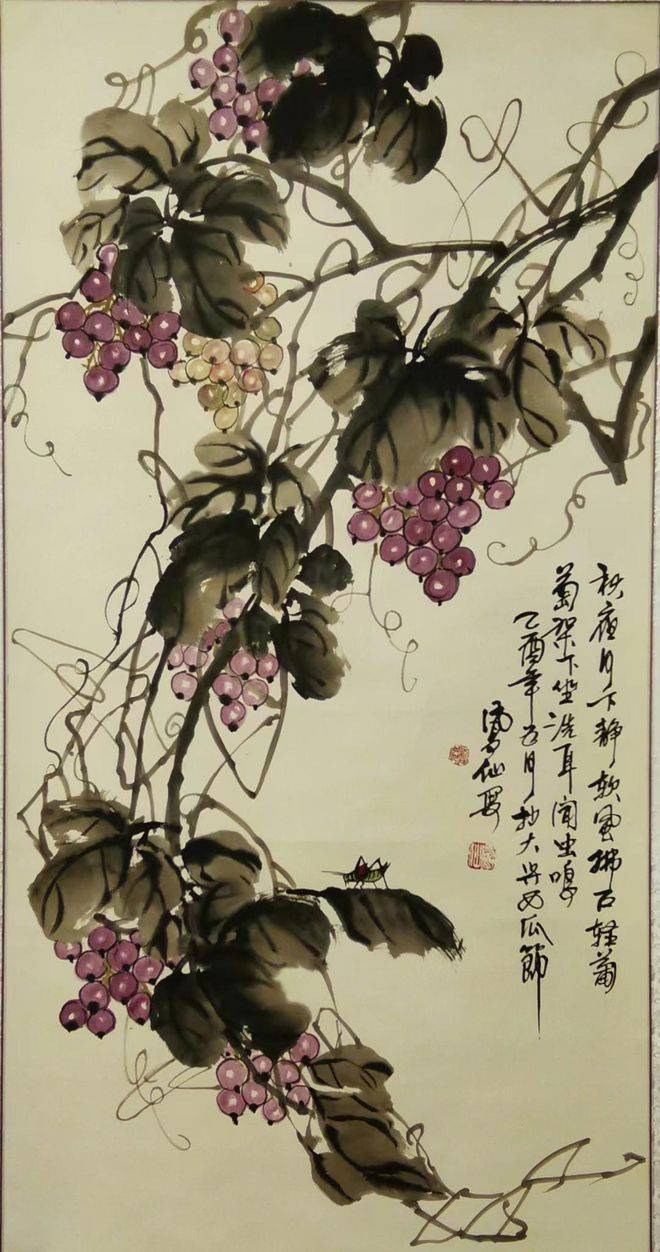 秋夜月下静软风拂面轻葡
萄架下坐洗耳闻虫鸣
乙酉年五月於大兴西瓜節
仙写